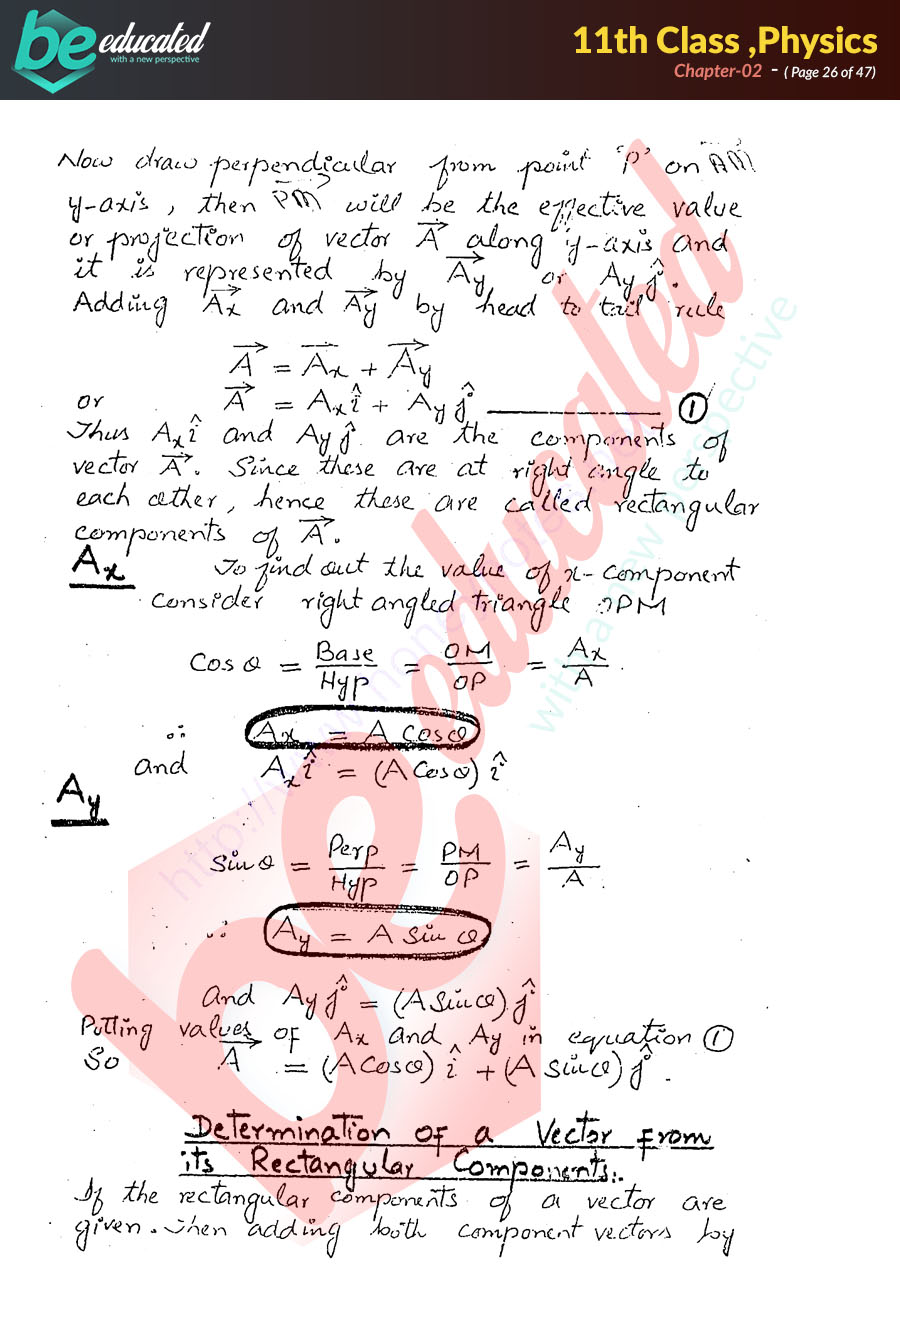 be educated
with a new perspective
11th Class ,Physics
Chapter-02 - ( Page 26 of 47)
Now draw perpendicular from point 'P' on
y-axis, then PM⃗ will be the effective value
or projection of vector A⃗ along y-axis and
it is represented by A⃗y or Ay ĵ.
Adding A⃗x and A⃗y by head to tail rule
A⃗ = A⃗x + A⃗y
or A⃗ = Ax î + Ay ĵ ———— ①
Thus Ax î and Ay ĵ are the components of
vector A⃗. Since these are at right angle to
each other, hence these are called rectangular
components of A⃗.
Ax To find out the value of x-component
Consider right angled triangle OPM
Cos θ = Base/Hyp = OM/OP = Ax/A
∴ Ax = A Cos θ
and Ax î = (A Cos θ) î
Ay
Sin θ = Perp/Hyp = PM/OP = Ay/A
∴ Ay = A Sin θ
and Ay ĵ = (A Sin θ) ĵ
Putting values of Ax and Ay in equation ①
So A⃗ = (A Cos θ) î + (A Sin θ) ĵ.
Determination of a Vector from
its Rectangular Components:.
If the rectangular components of a vector are
given. Then adding both component vectors by
be educated
with a new perspective